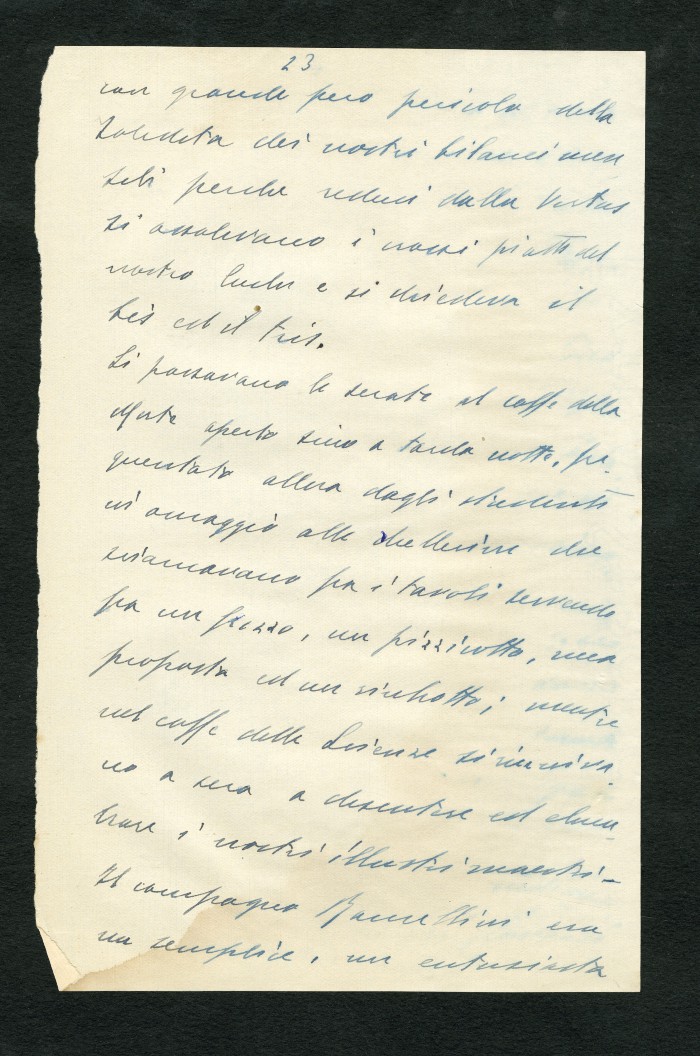 23
con grande pero pericolo della
soledita dei nostri bilanci men
sili perche reduci dalla Virtus
si assalivano i grossi piatti del
nostro e si chiedeva il
bis ed il tris.
Si passavano le serate al caffe della
Morte aperto sino a tarda notte, fre-
quentato allora dagli studenti
in omaggio alle chellerine che
sciamavano fra i tavoli servendo
fra un frizzo, un pizzicotto, una
proposta ed un rimbrotto; mentre
nel caffe delle Scienze si univa
no a sera a discutere ed elucu-
brare i nostri illustri maestri -
Il compagno era
un semplice, un entusiasta